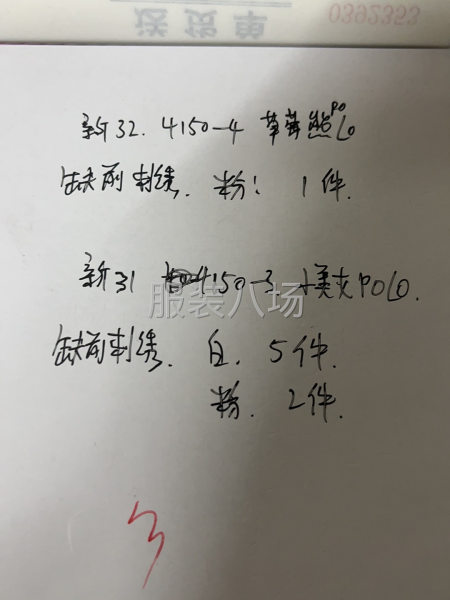 送货单 0392323
新32. 4150-4 草莓熊POLO
缺前刺绣. 粉: 1件.
新31 4150-3 美式POLO.
服装八场
缺前刺绣. 白. 5件.
粉. 2件.